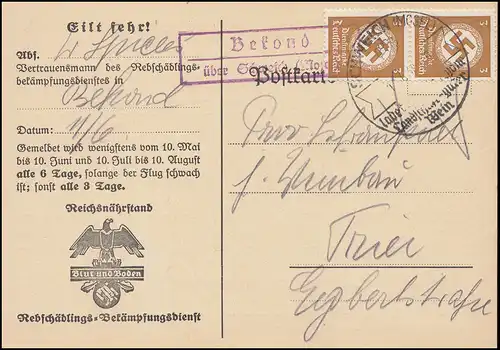 Eilt sehr!
Abs.
Vertrauensmann des Rebschädlings-
bekämpfungsdienstes in
Bekond
Datum: 11/6
Gemeldet wird wenigstens vom 10. Mai
bis 10. Juni und 10. Juli bis 10. August
alle 6 Tage, solange der Flug schwach
ist; sonst alle 3 Tage.
Reichsnährstand
Blut und Boden
Rebschädlings-Bekämpfungsdienst
Bekond
über
Postkarte
3 3
Dienstmarke
Deutsches Reich
3 3
Wein
f. Weinbau
Trier
Egbertstraße